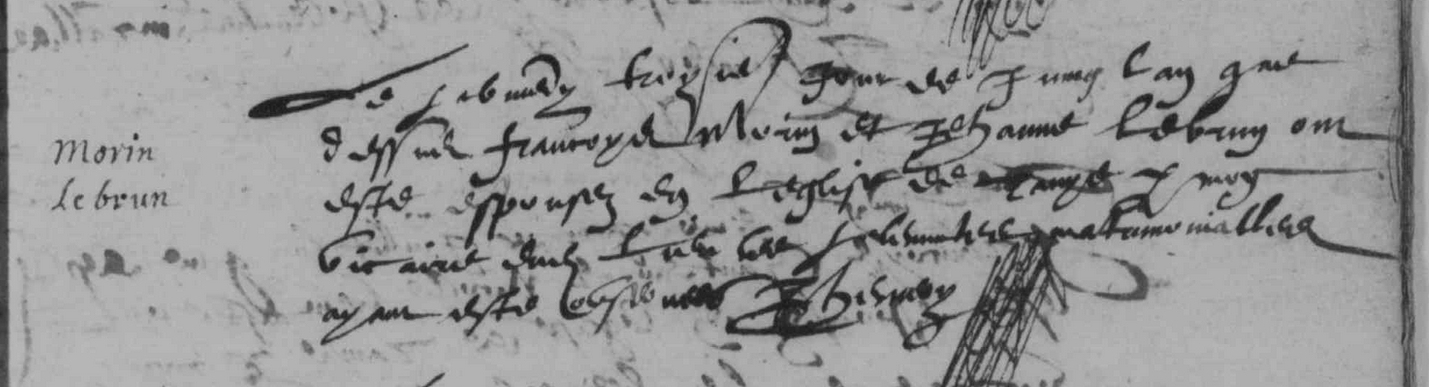 Morin
Le brun
Le jour de juing lan que
dessus francoys Morin et Jehanne Lebrun ont
este espousez en leglise de p moy
vicaire dud lieu les solemnitees matrimonialles
ayant este observees